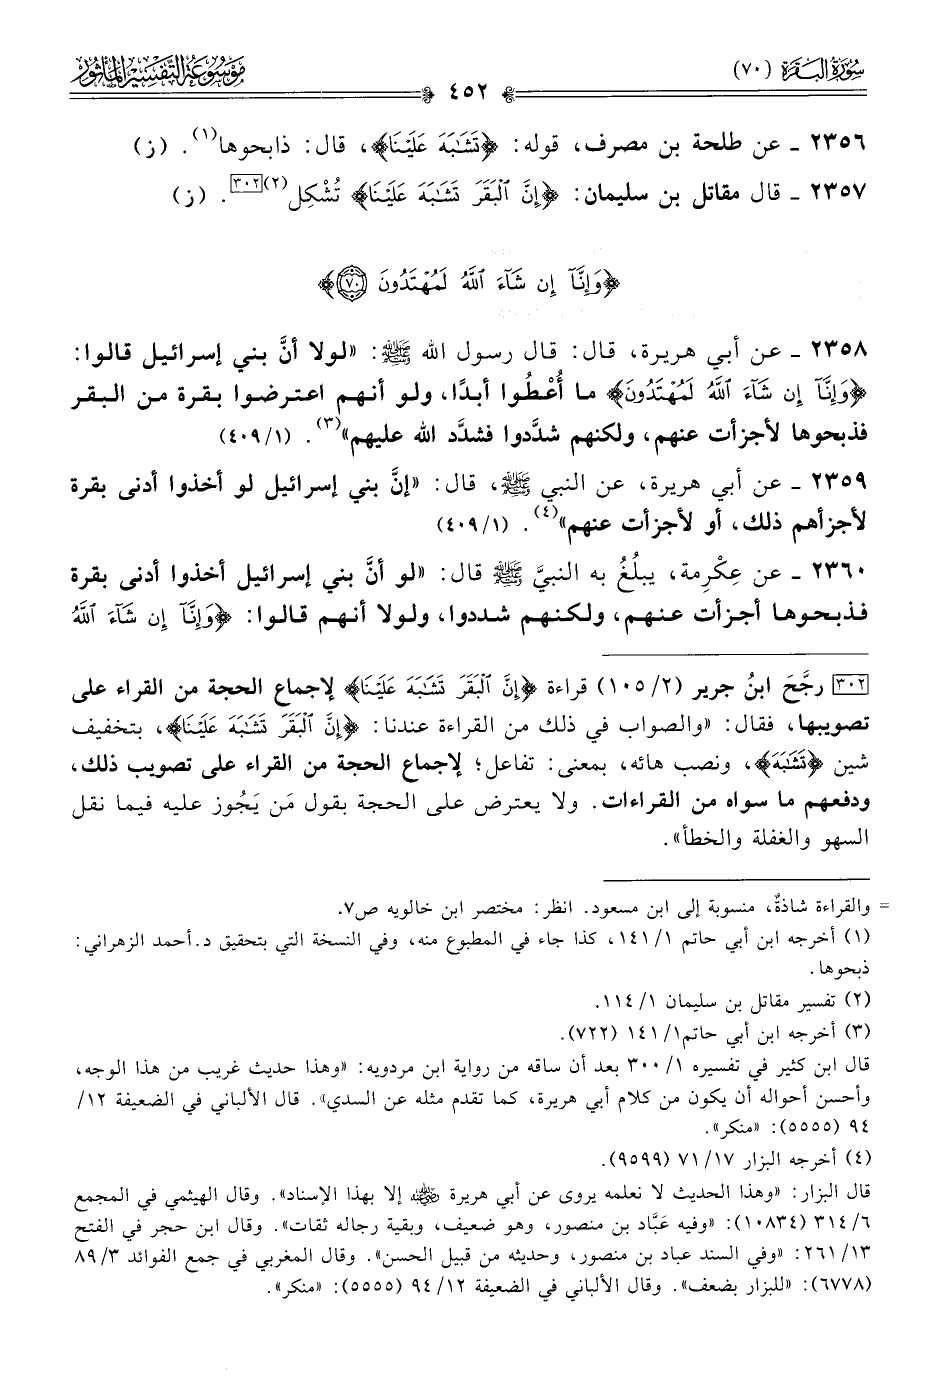 سورة البقرة (٧٠)
موسوعة التفسير المأثور
٤٥٢
٢٣٥٦ ـ عن طلحة بن مصرف، قوله: ﴿تَشَٰبَهَ عَلَيْنَا﴾، قال: ذابحوها(١). (ز)
٢٣٥٧ ـ قال مقاتل بن سليمان: ﴿إِنَّ ٱلْبَقَرَ تَشَٰبَهَ عَلَيْنَا﴾ تُشْكِل(٢)[٣٠٢]. (ز)
﴿وَإِنَّآ إِن شَآءَ ٱللَّهُ لَمُهْتَدُونَ ٧٠﴾
٢٣٥٨ ـ عن أبي هريرة، قال: قال رسول الله ﷺ: «لولا أنَّ بني إسرائيل قالوا:
﴿وَإِنَّآ إِن شَآءَ ٱللَّهُ لَمُهْتَدُونَ﴾ ما أُعْطُوا أبدًا، ولو أنهم اعترضوا بقرة من البقر
فذبحوها لأجزأت عنهم، ولكنهم شدَّدوا فشدَّد الله عليهم»(٣). (٤٠٩/١)
٢٣٥٩ ـ عن أبي هريرة، عن النبي ﷺ، قال: «إنَّ بني إسرائيل لو أخذوا أدنى بقرة
لأجزأهم ذلك، أو لأجزأت عنهم»(٤). (٤٠٩/١)
٢٣٦٠ ـ عن عِكْرِمة، يبلُغُ به النبيَّ ﷺ قال: «لو أنَّ بني إسرائيل أخذوا أدنى بقرة
فذبحوها أجزأت عنهم، ولكنهم شددوا، ولولا أنهم قالوا: ﴿وَإِنَّآ إِن شَآءَ ٱللَّهُ
[٣٠٢] رجَّحَ ابنُ جرير (١٠٥/٢) قراءة ﴿إِنَّ ٱلْبَقَرَ تَشَٰبَهَ عَلَيْنَا﴾ لإجماع الحجة من القراء على
تصويبها، فقال: «والصواب في ذلك من القراءة عندنا: ﴿إِنَّ ٱلْبَقَرَ تَشَٰبَهَ عَلَيْنَا﴾، بتخفيف
شين ﴿تَشَٰبَهَ﴾، ونصب هائه، بمعنى: تفاعل؛ لإجماع الحجة من القراء على تصويب ذلك،
ودفعهم ما سواه من القراءات. ولا يعترض على الحجة بقول مَن يَجُوز عليه فيما نقل
السهو والغفلة والخطأ».
= والقراءة شاذةٌ، منسوبة إلى ابن مسعود. انظر: مختصر ابن خالويه ص٧.
(١) أخرجه ابن أبي حاتم ١٤١/١، كذا جاء في المطبوع منه، وفي النسخة التي بتحقيق د.أحمد الزهراني:
ذبحوها.
(٢) تفسير مقاتل بن سليمان ١١٤/١.
(٣) أخرجه ابن أبي حاتم١٤١/١ (٧٢٢).
قال ابن كثير في تفسيره ٣٠٠/١ بعد أن ساقه من رواية ابن مردويه: «وهذا حديث غريب من هذا الوجه،
وأحسن أحواله أن يكون من كلام أبي هريرة، كما تقدم مثله عن السدي». قال الألباني في الضعيفة ١٢/
٩٤ (٥٥٥٥): «منكر».
(٤) أخرجه البزار ٧١/١٧ (٩٥٩٩).
قال البزار: «وهذا الحديث لا نعلمه يروى عن أبي هريرة رضي الله عنه إلا بهذا الإسناد». وقال الهيثمي في المجمع
٣١٤/٦ (١٠٨٣٤): «وفيه عَبَّاد بن منصور، وهو ضعيف، وبقية رجاله ثقات». وقال ابن حجر في الفتح
٢٦١/١٣: «وفي السند عباد بن منصور، وحديثه من قبيل الحسن». وقال المغربي في جمع الفوائد ٨٩/٣
(٦٧٧٨): «للبزار بضعف». وقال الألباني في الضعيفة ٩٤/١٢ (٥٥٥٥): «منكر».